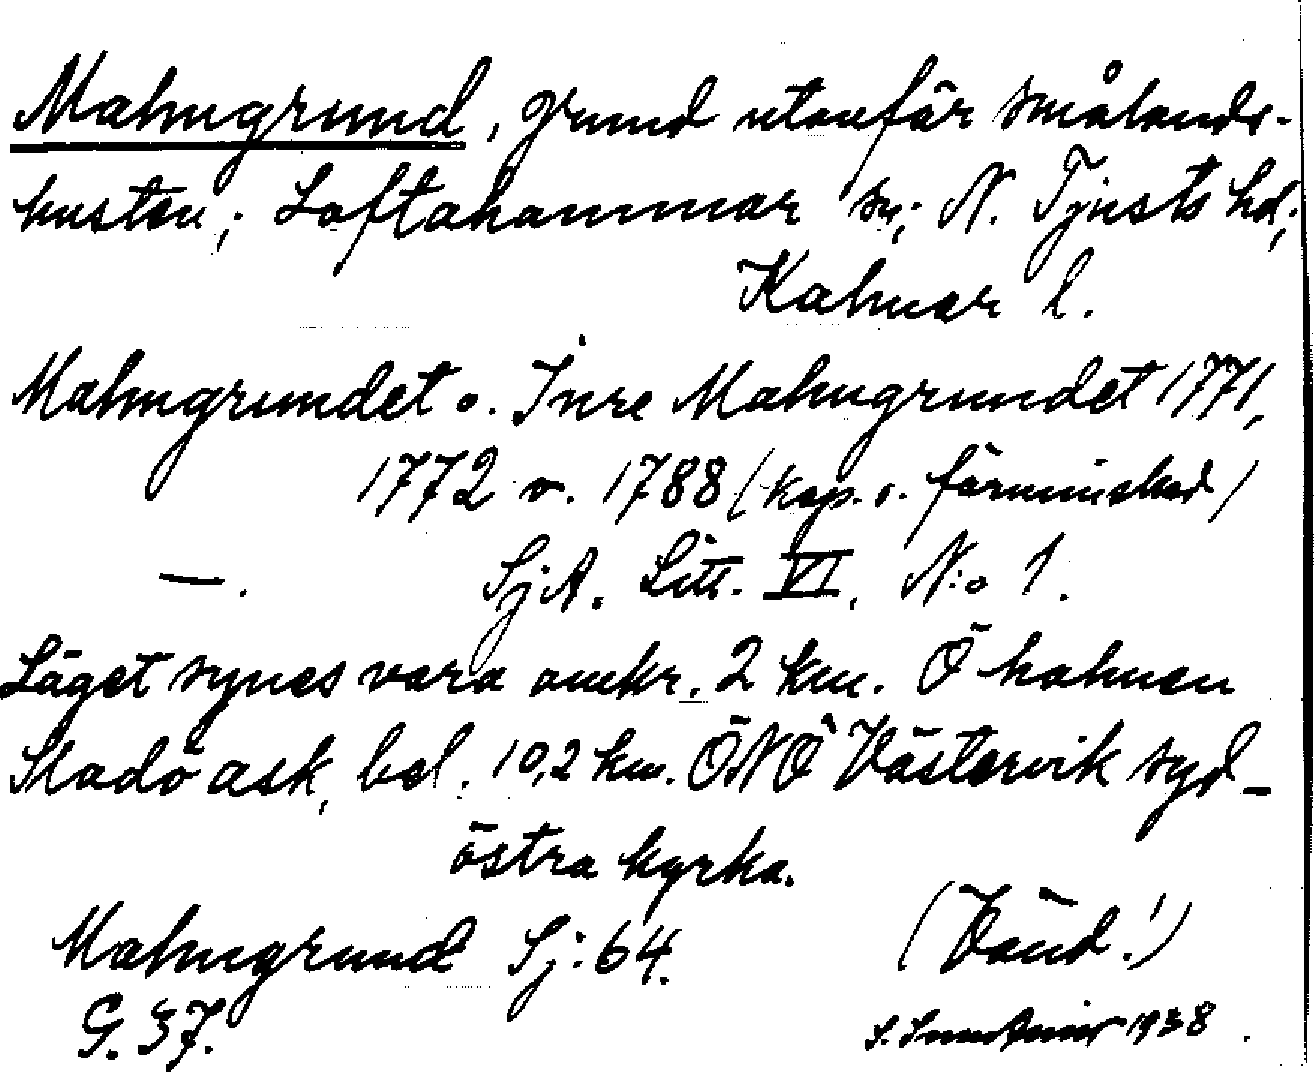 Malmgrund, grund utanför smålands-
kusten; Loftahammar sn; N. Tjusts hd;
Kalmar l.
Malmgrundet o. Inre Malmgrundet 1771,
1772 o. 1788 (kop. o. förminskad)
—. SjA. Litt. VI, N:o 1.
Läget synes vara omkr. 2 km. Ö holmen
Sladö ask, bel. 10,2 km. ÖNÖ Västervik syd-
östra kyrka.
Malmgrund Sj: 64. (Vänd!)
G. 37. 1938.